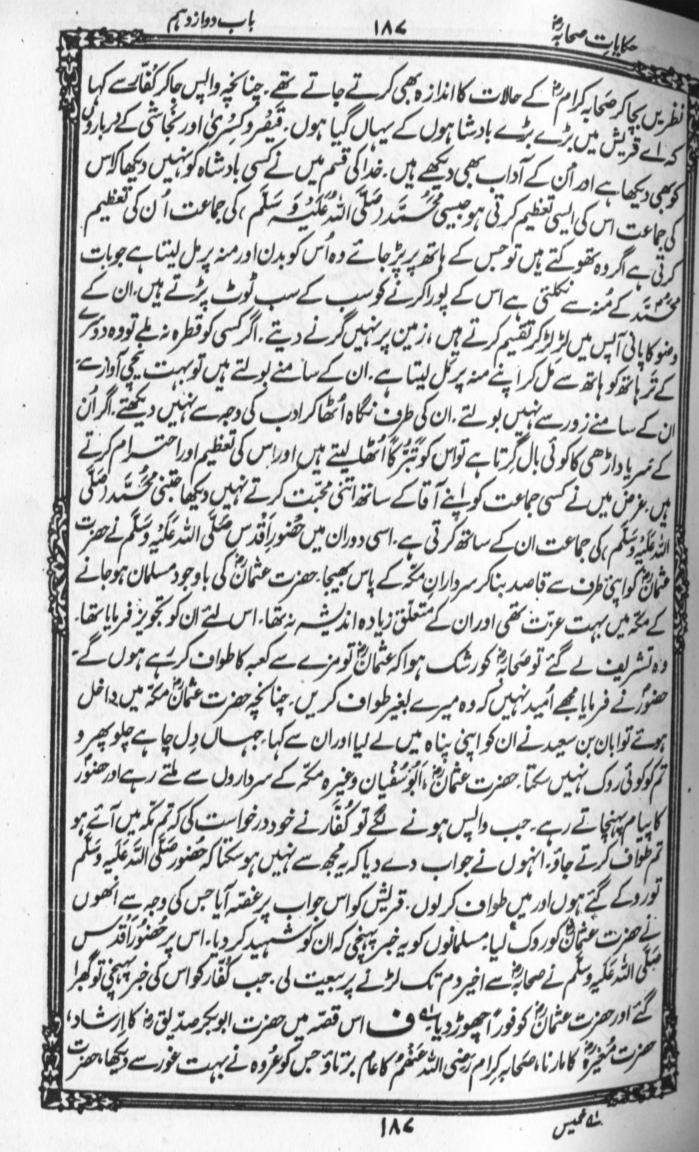 حکایات صحابہؓ ۱۸۷ باب دوازدہم
نظریں بچا کر صحابہ کرامؓ کے حالات کا اندازہ بھی کرتے جاتے تھے۔ چنانچہ واپس جا کر کفار سے کہا
کہ اے قریش میں بڑے بڑے بادشاہوں کے یہاں گیا ہوں۔ قیصر و کسریٰ اور نجاشی کے درباروں
کو بھی دیکھا ہے اور اُن کے آداب بھی دیکھے ہیں۔ خدا کی قسم میں نے کسی بادشاہ کو نہیں دیکھا کہ اس
کی جماعت اس کی ایسی تعظیم کرتی ہو جیسی محمد (صَلَّی اللہُ عَلَیْہِ وَسَلَّم) کی جماعت اُن کی تعظیم
کرتی ہے اگر وہ تھوکتے ہیں تو جس کے ہاتھ پر پڑ جائے وہ اُس کو بدن اور منہ پر مل لیتا ہے جو بات
محمدؐ کے مُنہ سے نکلتی ہے اس کے پورا کرنے کو سب کے سب ٹوٹ پڑتے ہیں۔ ان کے
وضو کا پانی آپس میں لڑ لڑ کر تقسیم کرتے ہیں، زمین پر نہیں گرنے دیتے۔ اگر کسی کو قطرہ نہ ملے تو وہ دوسرے
کے تر ہاتھ کو ہاتھ سے مل کر اپنے منہ پر مَل لیتا ہے۔ ان کے سامنے بولتے ہیں تو بہت نیچی آواز سے
ان کے سامنے زور سے نہیں بولتے۔ ان کی طرف نگاہ اُٹھا کر ادب کی وجہ سے نہیں دیکھتے۔ اگر اُن
کے سر یا داڑھی کا کوئی بال گرتا ہے تو اس کو تبرّکاً اُٹھا لیتے ہیں اور اس کی تعظیم اور احترام کرتے
ہیں۔ غرض میں نے کسی جماعت کو اپنے آقا کے ساتھ اتنی محبت کرتے نہیں دیکھا جتنی محمد (صَلَّی
اللہ عَلَیْہِ وَسَلَّم) کی جماعت ان کے ساتھ کرتی ہے۔ اسی دوران میں حضورِ اقدس صَلَّی اللہ عَلَیْہِ وَسَلَّم نے حضرت
عثمانؓ کو اپنی طرف سے قاصد بنا کر سردارانِ مکہ کے پاس بھیجا۔ حضرت عثمانؓ کی باوجود مسلمان ہو جانے
کے مکہ میں بہت عزت تھی اور ان کے متعلق زیادہ اندیشہ نہ تھا، اس لئے ان کو تجویز فرمایا تھا۔
وہ تشریف لے گئے تو صحابہؓ کو رشک ہوا کہ عثمانؓ تو مزے سے کعبہ کا طواف کر رہے ہوں گے۔
حضورؐ نے فرمایا مجھے اُمید نہیں کہ وہ میرے بغیر طواف کریں۔ چنانچہ حضرت عثمانؓ مکہ میں داخل
ہوئے تو ابان بن سعید نے ان کو اپنی پناہ میں لے لیا اور ان سے کہا۔ جہاں دِل چاہے چلو پھرو
تم کو کوئی روک نہیں سکتا۔ حضرت عثمانؓ، اَبُو سُفیان وغیرہ مکہ کے سرداروں سے ملتے رہے اور حضورؐ
کا پیام پہنچاتے رہے۔ جب واپس ہونے لگے تو کفّار نے خود درخواست کی کہ تم مکہ میں آئے ہو
تم طواف کرتے جاؤ۔ انہوں نے جواب دے دیا کہ یہ مجھ سے نہیں ہو سکتا کہ حضور صَلَّی اللہ عَلَیْہ وَسَلَّم
تو روکے گئے ہوں اور میں طواف کر لوں۔ قریش کو اس جواب پر غصّہ آیا جس کی وجہ سے اُنھوں
نے حضرت عثمانؓ کو روک لیا، مسلمانوں کو یہ خبر پہنچی کہ ان کو شہید کر دیا۔ اس پر حضورِ اقدس
صَلَّی اللہ عَلَیْہِ وَسَلَّم نے صحابہؓ سے اخیر دم تک لڑنے پر بیعت لی۔ جب کفّار کو اس کی خبر پہنچی تو گھبرا
گئے اور حضرت عثمانؓ کو فوراً چھوڑ دیا۔ ف اس قصہ میں حضرت ابوبکر صدیقؓ کا ارشاد،
حضرت مُغیرہؓ کا مارنا، صحابہ کرام رَضِیَ اللہ عَنْھُمْ کا عام برتاؤ جس کو عُروہ نے بہت غور سے دیکھا، حضرت
۱۸۷ خمیس